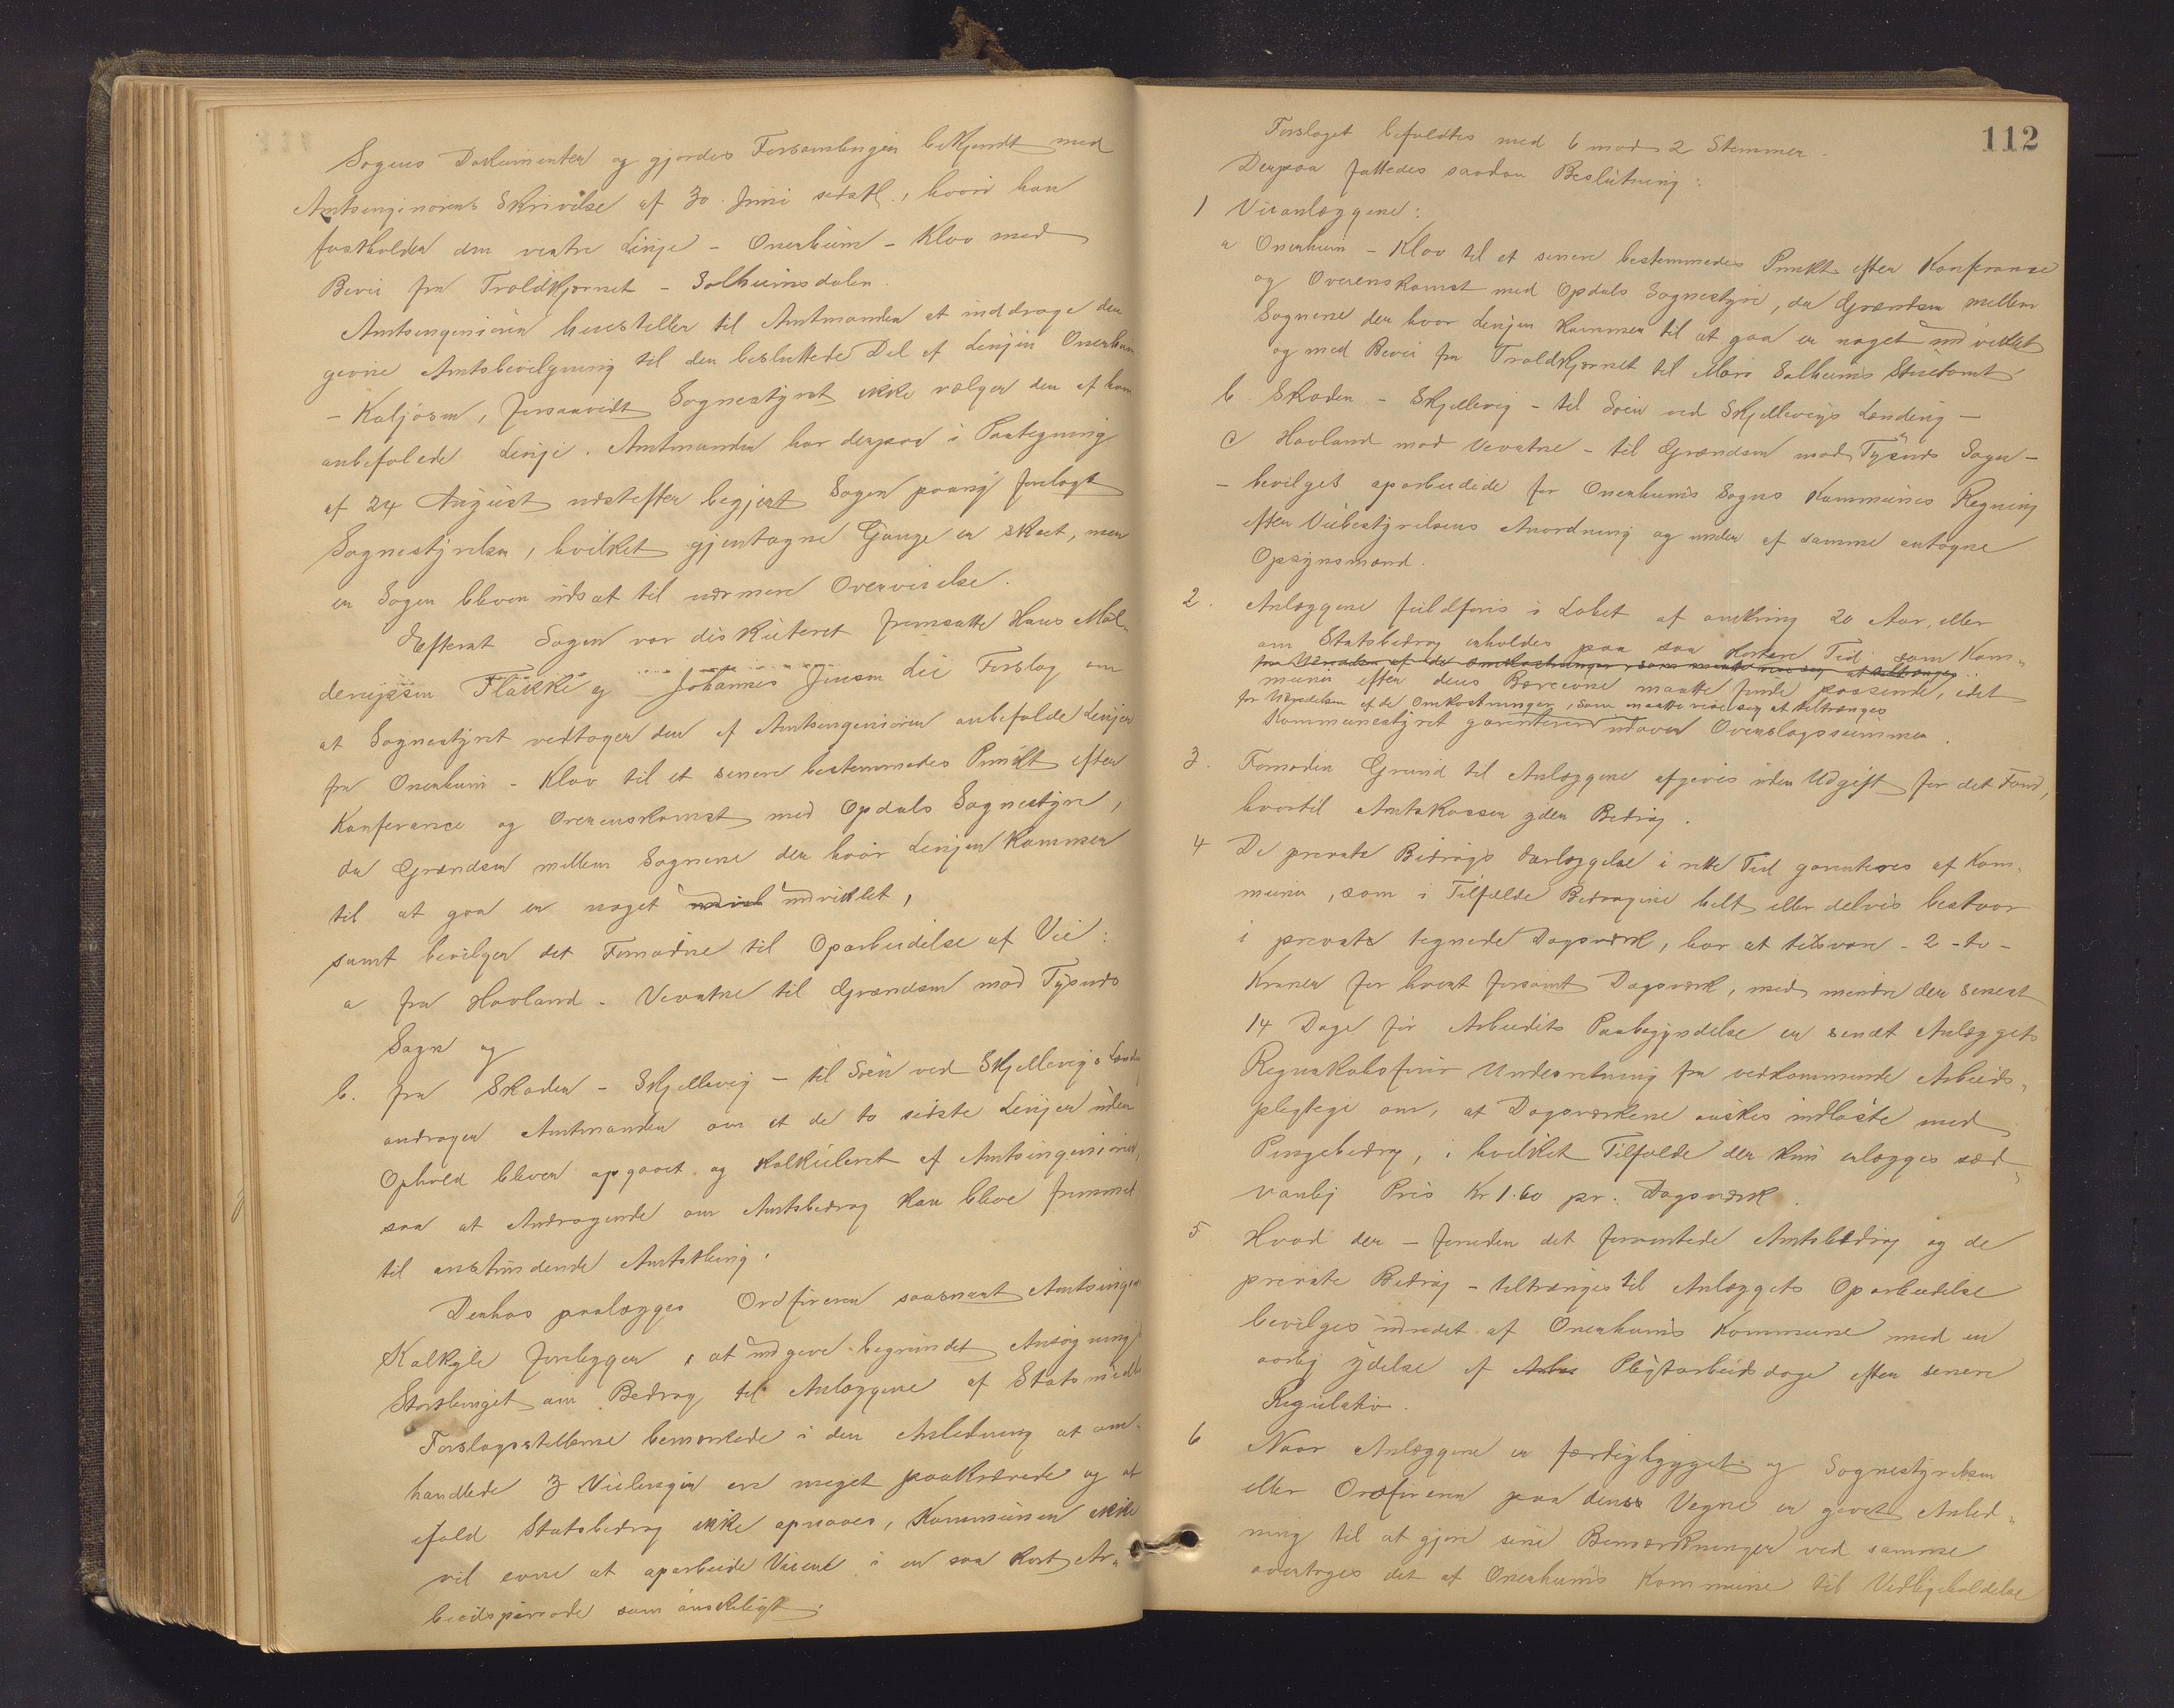 Sagens Dokumenter og gjordes Forsamlingen bekjendt med
Amtsingeniørens Skrivelse af 30 Juni sidstl., hvori han
fastholder den vestre Linje - Onerheim - Kloo med
Bivei fra Troldkjernet - Solheimsdalen.
Amtsingeniøren henstiller til Amtmanden at inddrage den
givne Amtsbevilgning til den besluttede Del af Linjen Onerheim
- Kaljøsen, forsaavidt Sognestyret ikke vælger den af ham
anbefalede Linje. Amtmanden har derpaa i Paategning
af 24 August næstefter begjært Sagen paany forelagt
Sognestyrelsen, hvilket gjentagne Gange er skeet, men
er Sagen bleven udsat til nærmere Overveielse.
Efterat Sagen var diskuteret fremsatte Hans Mol-
denejssen Flakke og Johannes Jensen Lie Forslag om
at Sognestyret vedtager den af Amtsingeniøren anbefalde Linjen
fra Onerheim - Kloo til et senere bestemmedes Punkt efter
Konferance og Overenskomst med Opdals Sognestyre,
da Grændsen mellem Sognene der hvor Linjen kommer
til at gaa er noget indviklet,
samt bevilger det Fornødne til Oparbeidelse af Vei:
a fra Hovland - Vevatne til Grændsen mod Tysnes
Sogn og
b. fra Skaden - Skjellevig - til Søen ved Skjellevigs Landing
andrager Amtmanden om at de to sidste Linjer uden
Ophold bliver opgaaet og kalkuleret af Amtsingeniøren,
saa at Andragende om Amtsbidrag kan blive fremmet
til anstundende Amtsthing.
Derhos paalægges Ordføreren saasnart Amtsingen
Kalkyle foreligger, at indgive begrundet Ansøgning
Storthinget om Bidrag til Anlæggene af Statsmidler
Forslagsstillerne bemærkede i den Anledning at om-
handlede 3 Veilengjer ere meget paakrævede og at
ifald Statsbidrag ikke opnaaes, Kommunen ikke
vil evne at oparbeide Veiene i en saa kort Ar-
beidsperiode som ønskeligt.
112
Forslaget befaldtes med 6 mod 2 Stemmer.
Derpaa fattedes saadan Beslutning:
1 Veianlæggene:
a Onerheim - Kloo til et senere bestemmedes Punkt efter Konferanse
og Overenskomst med Opdals Sognestyre, da Grændsen mellem
Sognene der hvor Linjen kommer til at gaa er noget indviklet
og med Bivei fra Troldkjernet til Mons Solheims Stuetomt
b. Skaden - Skjellevig - til Søen ved Skjellevigs Landing -
c Hovland mod Vevatne - til Grændsen mod Tysnes Sogn -
- bevilges oparbeidede for Onerheims Sogns Kommunes Regning
efter Veibestyrelsens Anordning og under af samme antagne
Opsynsmænd.
2. Anlæggene fuldføres i Løbet af omkring 20 Aar, eller
om Statsbidrag erholdes paa saa kortere Tid som Kom-
for Udredelsen af de Omkostninger, som maatte vise sig at tiltrænges
munen efter dens Bæreevne maatte finde passende, idet
for Udredelsen af de Omkostninger, som maatte vise sig at tiltrænges
Kommunestyret garanterer udover Overslagssummen.
3. Fornøden Grund til Anlæggene afgives uden Udgift for det Fond,
hvortil Amtskassen yder Bidrag.
4 De private Bidrags Tarlæggelse i rette Tid garanteres af Kom-
munen, som i Tilfælde Bidragene helt eller delvis bestaar
i private tegnede Dagsværk, har at tilsvare - 2 - to -
Kroner for hvert forsømt Dagsværk, med mindre der senest
14 Dage før Arbeidets Paabegyndelse er sendt Anlæggets
Regnskabsfører Underretning fra vedkommende Arbeids-
plegtige om, at Dagsværkene ønskes indløste med
Pengebidrag, i hvilket Tilfælde der kun erlægges sæd-
vanlig Pris Kr 1.60 pr. Dagsværk.
5 Hvad der - foruden det forventede Amtsbidrag og de
private Bidrag - tiltrænges til Anlæggets Oparbeidelse
bevilges udredet af Onerheims Kommune med en
aarlig Ydelse af Arbei Pligtarbeidsdage efter senere
Regulativ.
6 Naar Anlæggene er færdigbygget og Sognestyrelsen
eller Ordføreren paa denss Vegne er givet Anled-
ning til at gjøre sine Bemærkninger ved samme
overtages det af Onerheims Kommune til Vedligeholdelse